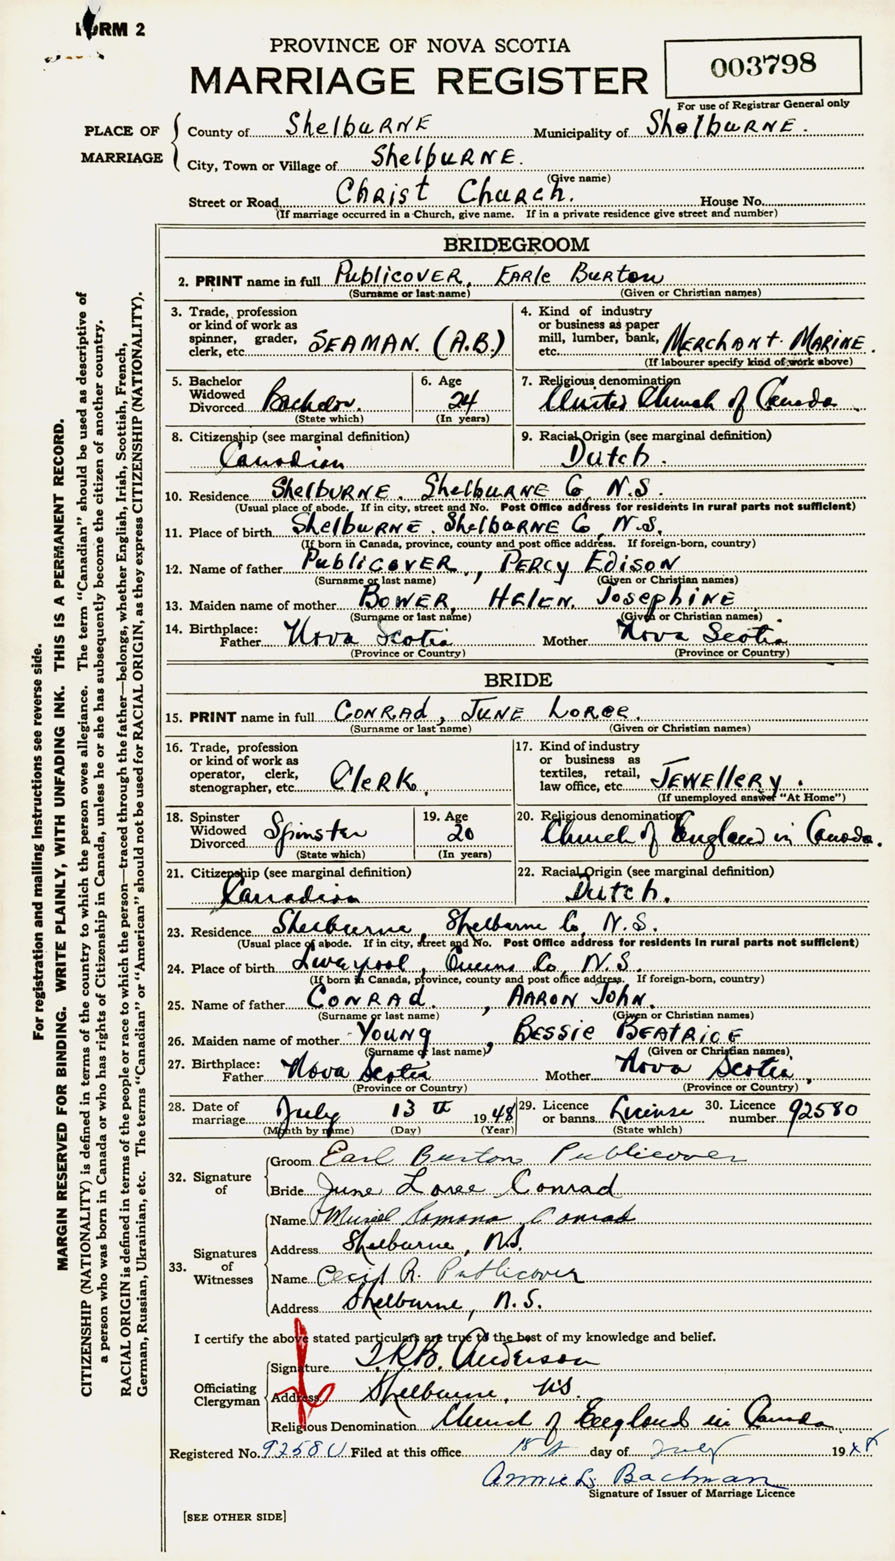 FORM 2
PROVINCE OF NOVA SCOTIA
MARRIAGE REGISTER
003798
For use of Registrar General only
PLACE OF MARRIAGE
County of Shelburne Municipality of Shelburne.
City, Town or Village of Shelburne.
(Give name)
Street or Road Christ Church. House No.
(If marriage occurred in a Church, give name. If in a private residence give street and number)
BRIDEGROOM
2. PRINT name in full Publicover, Earle Burton
(Surname or last name) (Given or Christian names)
3. Trade, profession or kind of work as spinner, grader, clerk, etc. SEAMAN. (A.B.)
4. Kind of industry or business as paper mill, lumber, bank, etc. Merchant Marine.
(If labourer specify kind of work above)
5. Bachelor Widowed Divorced Bachelor. (State which)
6. Age 24 (In years)
7. Religious denomination United Church of Canada
8. Citizenship (see marginal definition) Canadian
9. Racial Origin (see marginal definition) Dutch.
10. Residence Shelburne. Shelburne Co N.S.
(Usual place of abode. If in city, street and No. Post Office address for residents in rural parts not sufficient)
11. Place of birth Shelburne. Shelburne Co N.S.
(If born in Canada, province, county and post office address. If foreign-born, country)
12. Name of father Publicover, Percy Edison
(Surname or last name) (Given or Christian names)
13. Maiden name of mother Bower, Helen Josephine
(Surname or last name) (Given or Christian names)
14. Birthplace: Father Nova Scotia Mother Nova Scotia.
(Province or Country) (Province or Country)
BRIDE
15. PRINT name in full Conrad, June Loree.
(Surname or last name) (Given or Christian names)
16. Trade, profession or kind of work as operator, clerk, stenographer, etc. Clerk.
17. Kind of industry or business as textiles, retail, law office, etc. Jewellery.
(If unemployed answer "At Home")
18. Spinster Widowed Divorced Spinster (State which)
19. Age 20 (In years)
20. Religious denomination Church of England in Canada.
21. Citizenship (see marginal definition) Canadian
22. Racial Origin (see marginal definition) Dutch.
23. Residence Shelburne, Shelburne Co, N.S.
(Usual place of abode. If in city, street and No. Post Office address for residents in rural parts not sufficient)
24. Place of birth Liverpool, Queens Co. N.S.
(If born in Canada, province, county and post office address. If foreign-born, country)
25. Name of father Conrad, Aaron John.
(Surname or last name) (Given or Christian names)
26. Maiden name of mother Young, Bessie Beatrice
(Surname or last name) (Given or Christian names)
27. Birthplace: Father Nova Scotia Mother Nova Scotia.
(Province or Country) (Province or Country)
28. Date of marriage July 13th 1948
(Month by name) (Day) (Year)
29. Licence or banns License (State which)
30. Licence number 92580
32. Signature of
Groom Earl Burton Publicover
Bride June Loree Conrad
33. Signatures of Witnesses
Name Muriel Romona Conrad
Address Shelburne, N.S.
Name Cecil R. Publicover
Address Shelburne, N.S.
I certify the above stated particulars are true to the best of my knowledge and belief.
Officiating Clergyman
Signature T.R.B. Anderson
Address Shelburne, N.S.
Religious Denomination Church of England in Canada
Registered No. 92580 Filed at this office day of July 1948
Annie L. Bachman
Signature of Issuer of Marriage Licence
[SEE OTHER SIDE]
For registration and mailing instructions see reverse side.
MARGIN RESERVED FOR BINDING. WRITE PLAINLY, WITH UNFADING INK. THIS IS A PERMANENT RECORD.
CITIZENSHIP (NATIONALITY) is defined in terms of the country to which the person owes allegiance. The term "Canadian" should be used as descriptive of
a person who was born in Canada or who has rights of Citizenship in Canada, unless he or she has subsequently become the citizen of another country.
RACIAL ORIGIN is defined in terms of the people or race to which the person—traced through the father—belongs, whether English, Irish, Scottish, French,
German, Russian, Ukrainian, etc. The terms "Canadian" or "American" should not be used for RACIAL ORIGIN, as they express CITIZENSHIP (NATIONALITY).